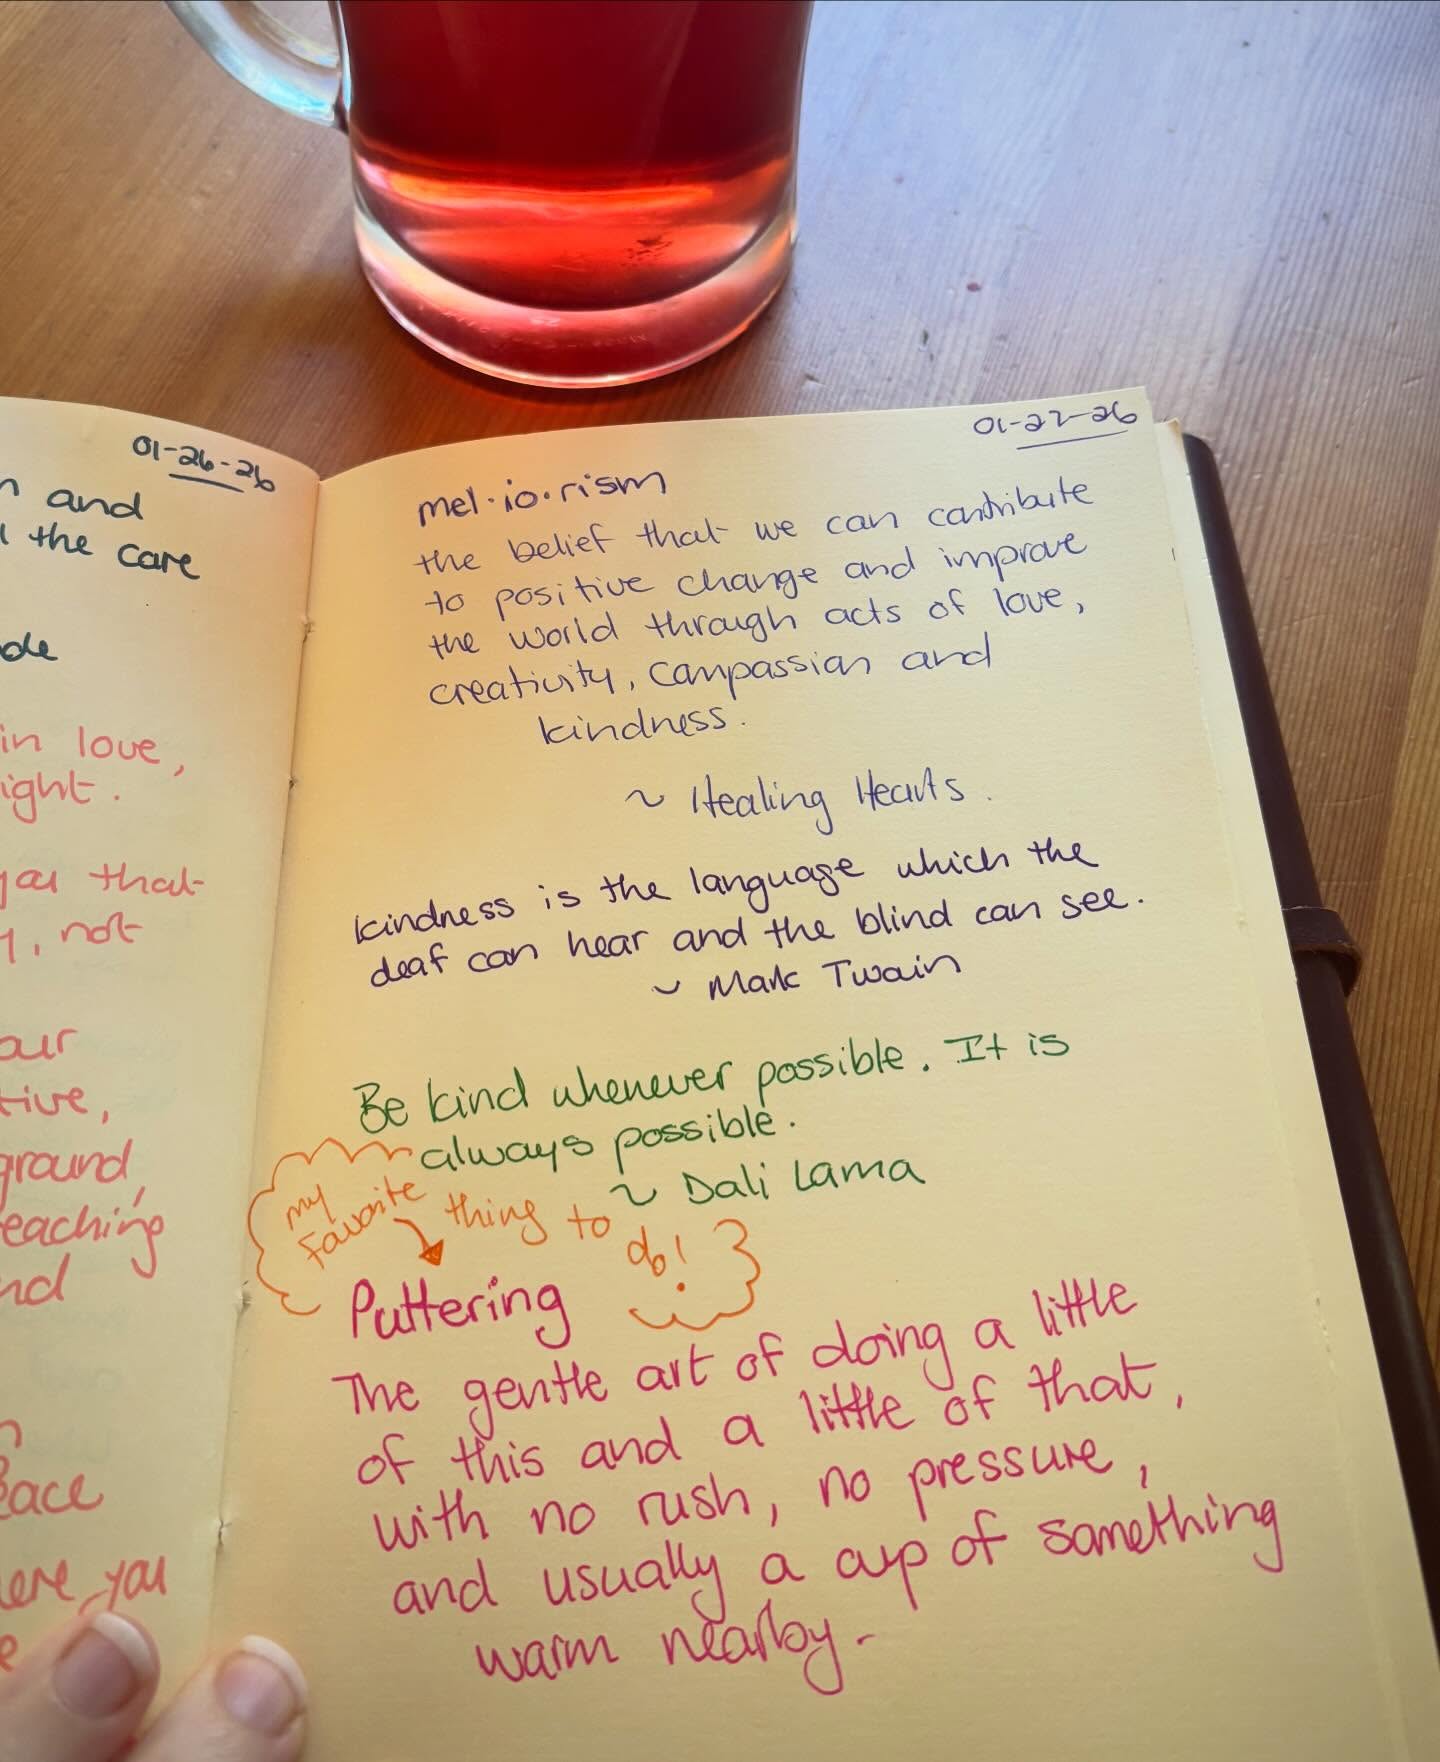 01-26-26
and
the care
de
in love,
ight.
that
, not
our
tive,
ground,
eaching
nd
eace
ere you
01-27-26
mel·io·rism
the belief that we can contribute
to positive change and improve
the world through acts of love,
creativity, compassion and
kindness.
~ Healing Hearts.
kindness is the language which the
deaf can hear and the blind can see.
~ Mark Twain
Be kind whenever possible. It is
always possible.
~ Dali Lama
my
favorite thing to
do!
Puttering
The gentle art of doing a little
of this and a little of that,
with no rush, no pressure,
and usually a cup of something
warm nearby-